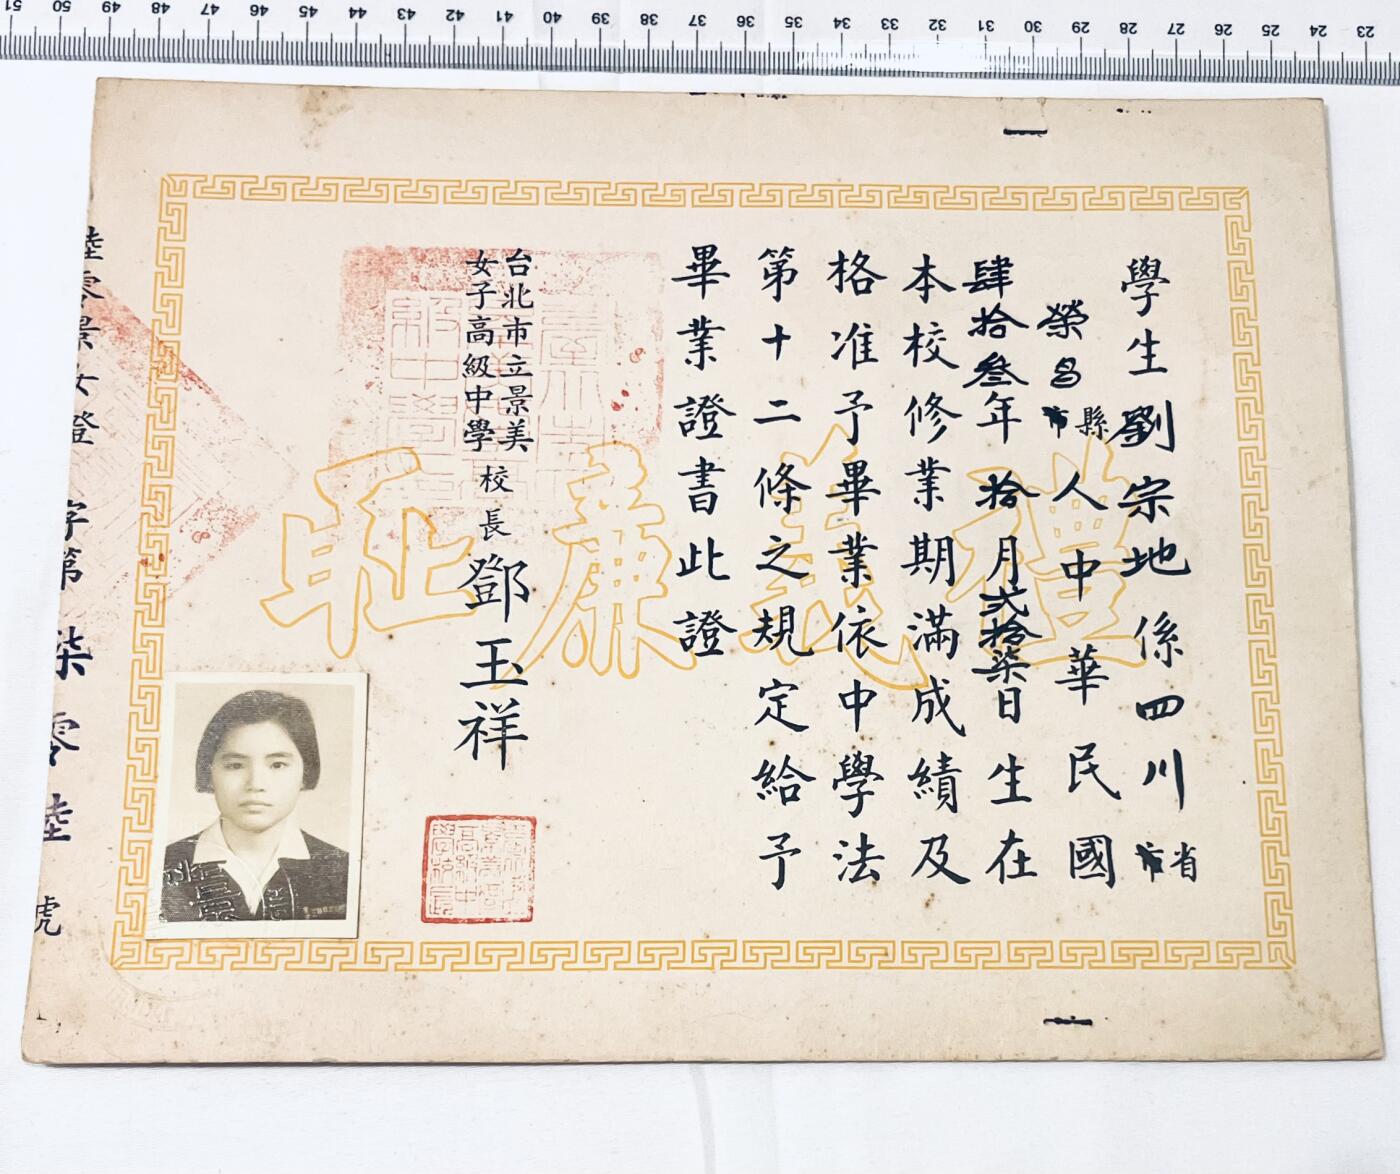 學生劉宗地係四川省市
榮昌縣市人中華民國
肆拾叁年拾月貳拾柒日生在
本校修業期滿成績及
格准予畢業依中學法
第十二條之規定給予
畢業證書此證
台北市立景美
女子高級中學
校長鄧玉祥
禮義廉恥
陸零景女證字第柒零陸號
51 50 49 48 47 46 45 44 43 42 41 40 39 38 37 36 35 34 33 32 31 30 29 28 27 26 25 24 23